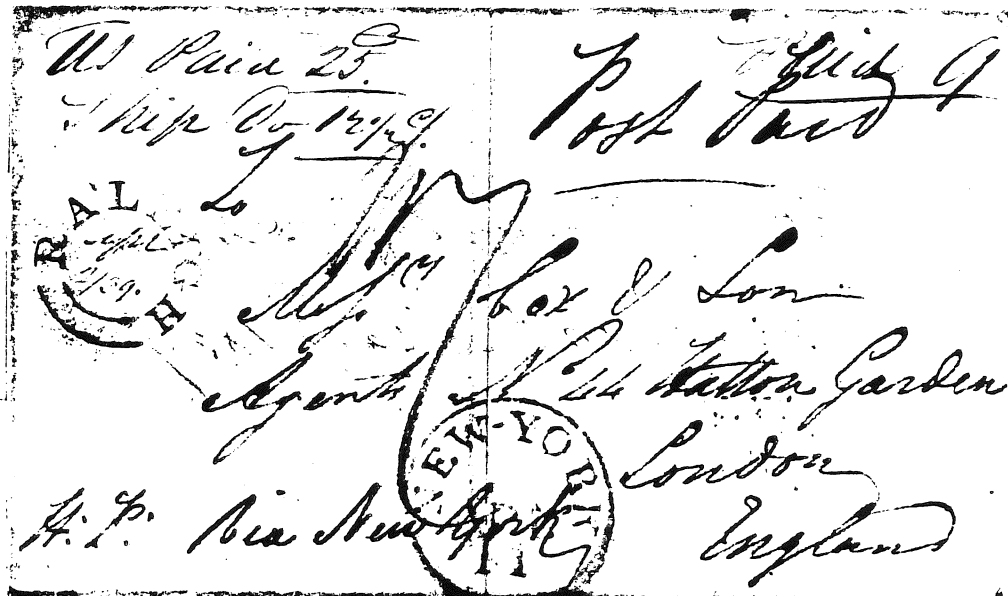 US Paid 25.
Ship Do
Paid 9
Post Paid
To
Messrs Cox & Son
Agents No 44 Hatton Garden
London
England
H. P. Via New York
RAL H
NEW-YORK
11